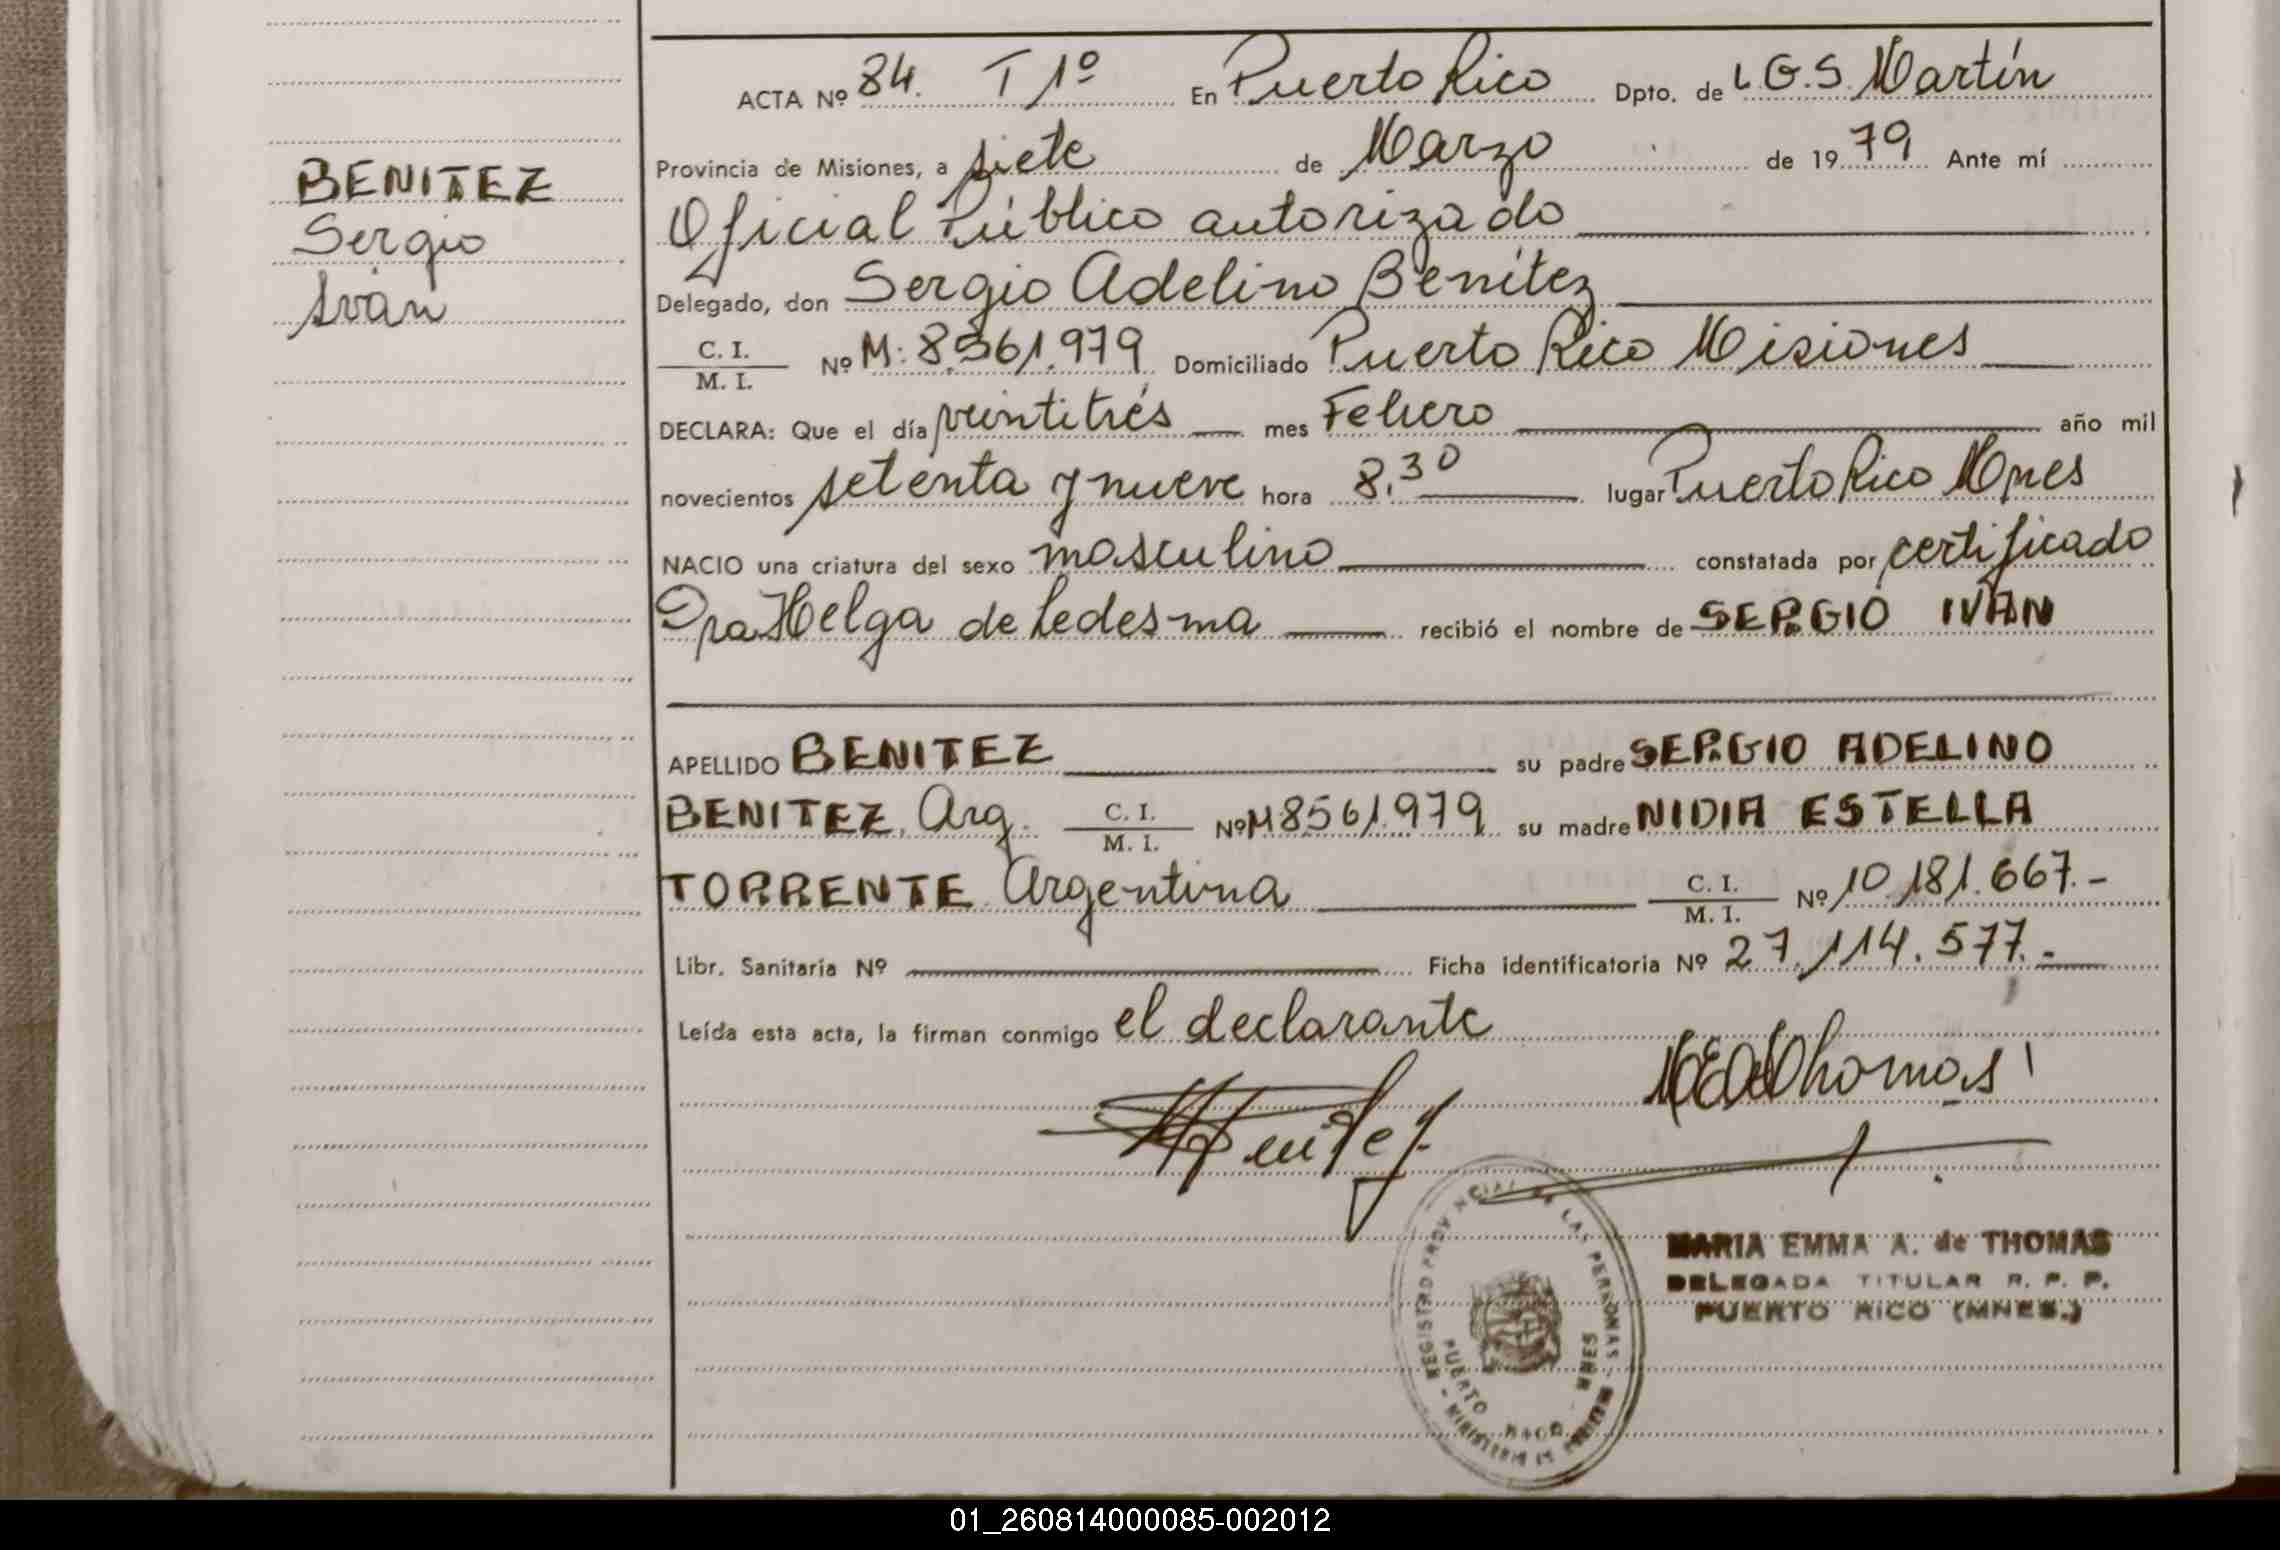 ACTA Nº 84. T 1º En Puerto Rico Dpto. de L.G.S. Martín
Provincia de Misiones, a siete de Marzo de 1979 Ante mí
Oficial Público autorizado
Delegado, don Sergio Adelino Benítez
C. I.
M. I.
Nº M: 8.561.979 Domiciliado Puerto Rico Misiones
DECLARA: Que el día veintitrés mes Febrero año mil
novecientos setenta y nueve hora 8.30 lugar Puerto Rico Mnes
NACIO una criatura del sexo masculino constatada por certificado
Dra Helga de Ledesma recibió el nombre de SERGIO IVAN
APELLIDO BENITEZ su padre SERGIO ADELINO
BENITEZ. Arg. C. I. M. I. Nº M 8561.979 su madre NIDIA ESTELLA
TORRENTE Argentina C. I. M. I. Nº 10.181.667.-
Libr. Sanitaria Nº Ficha identificatoria Nº 27.114.577.-
Leída esta acta, la firman conmigo el declarante
MEAdeThomas
MARIA EMMA A. de THOMAS
DELEGADA TITULAR R. P. P.
PUERTO RICO (MNES.)
REGISTRO PROVINCIAL DE LAS PERSONAS - MINISTERIO DE
PUERTO RICO - MNES
BENITEZ
Sergio
Iván
01_260814000085-002012